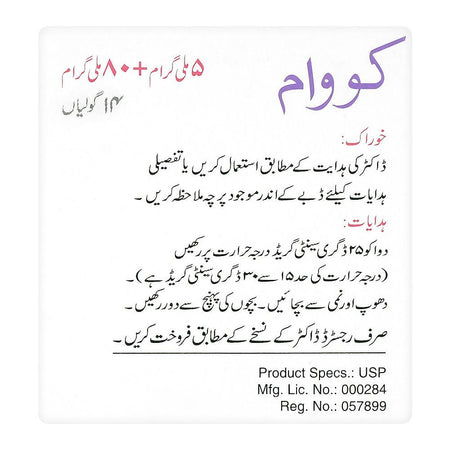 کووام
۵ ملی گرام + ۸۰ ملی گرام
۱۴ گولیاں
خوراک:
ڈاکٹر کی ہدایت کے مطابق استعمال کریں یا تفصیلی
ہدایات کیلئے ڈبے کے اندر موجود پرچہ ملاحظہ کریں ۔
ہدایات:
دوا کو ۲۵ ڈگری سینٹی گریڈ درجہ حرارت پر رکھیں
(درجہ حرارت کی حد ۱۵ سے ۳۰ ڈگری سینٹی گریڈ ہے) ۔
دھوپ اور نمی سے بچائیں ۔ بچوں کی پہنچ سے دور رکھیں ۔
صرف رجسٹرڈ ڈاکٹر کے نسخے کے مطابق فروخت کریں ۔
Product Specs.: USP
Mfg. Lic. No.: 000284
Reg. No.: 057899